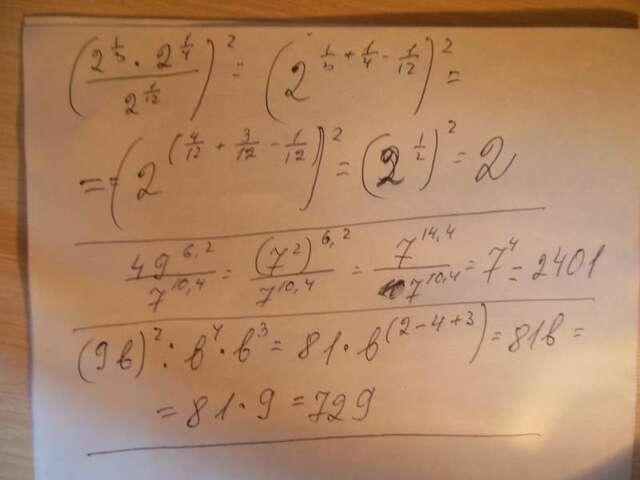 (2^{1/3} · 2^{1/4} / 2^{1/12})^2 = (2^{1/3 + 1/4 - 1/12})^2 =
= = (2^{(4/12 + 3/12 - 1/12)})^2 = (2^{1/2})^2 = 2
49^{6,2} / 7^{10,4} = (7^2)^{6,2} / 7^{10,4} = 7^{14,4} / 7^{10,4} = 7^4 = 2401
(9b)^2 : b^4 · b^3 = 81 · b^{(2-4+3)} = 81b =
= 81 · 9 = 729